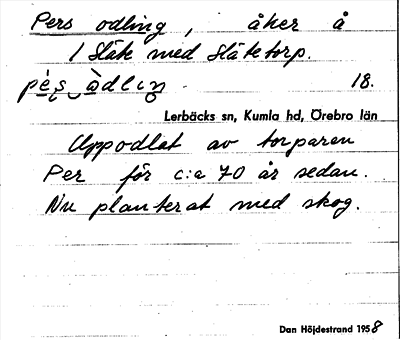 Pers odling, åker å
1 Släte med Slätetorp.
18.
Lerbäcks sn, Kumla hd, Örebro län
Uppodlat av torparen
Per för c:a 70 år sedan.
Nu planterat med skog.
Dan Höjdestrand 1958